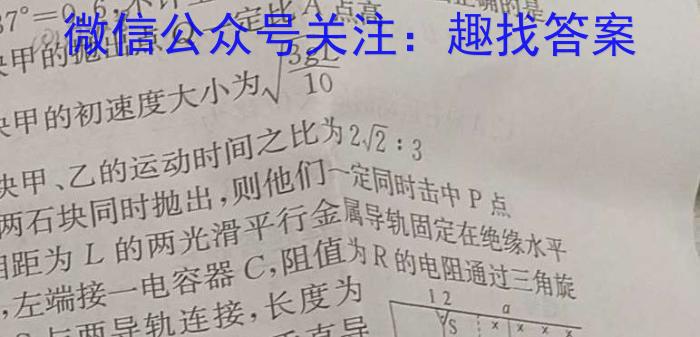 37°=0.6
正确的是
微信公众号关注：趣找答案
块甲的抛出点Q一定比A点高
块甲的初速度大小为√(3gL/10)
块甲、乙的运动时间之比为2√2：3
两石块同时抛出，则他们一定同时击中P点
相距为L的两光滑平行金属导轨固定在绝缘水平
，左端接一电容器C，阻值为R的电阻通过三角旋
与两导轨连接，长度为
1 2
a
S
× × × ×